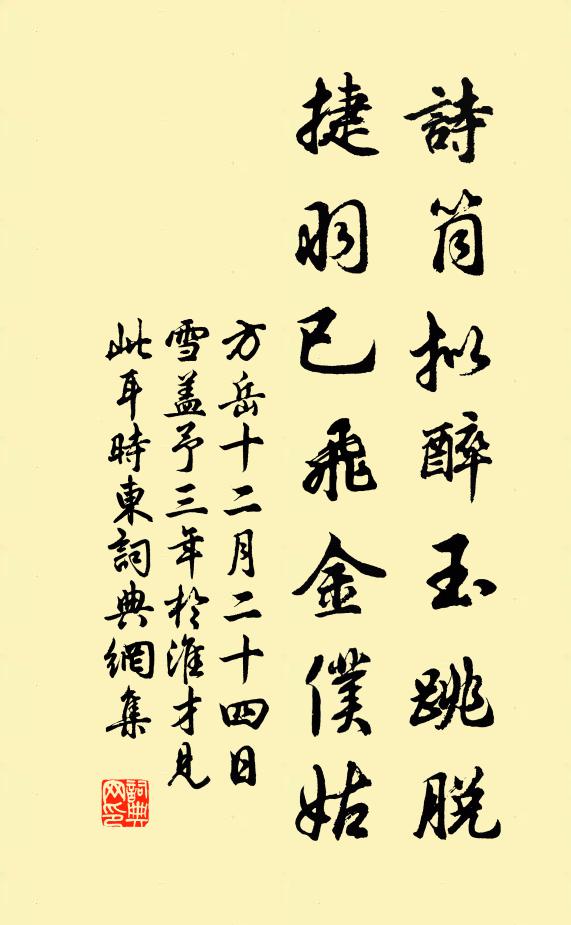 詩筒拟醉玉跳脱
捷羽已飛金僕姑
方岳十二月二十四日
雪盖予三年於淮才見
此耳時東詞典網集
詞典網印